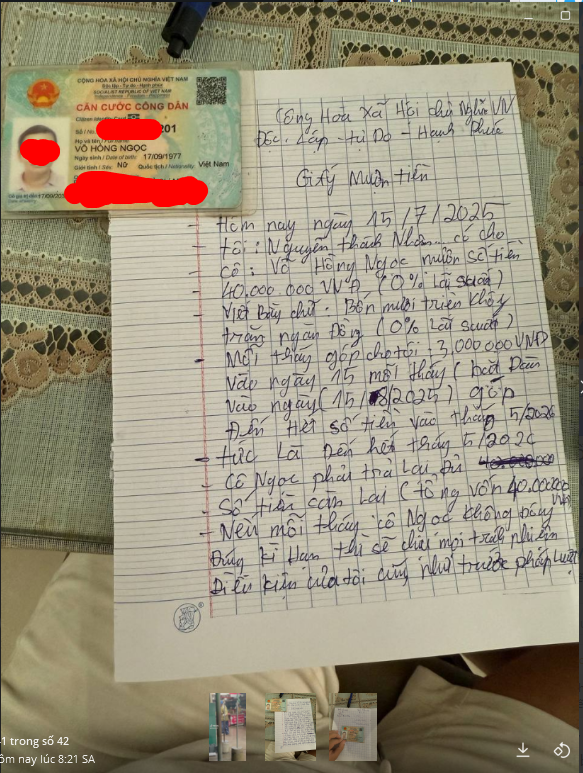 CỘNG HÒA XÃ HỘI CHỦ NGHĨA VIỆT NAM
Độc lập - Tự do - Hạnh phúc
SOCIALIST REPUBLIC OF VIET NAM
CĂN CƯỚC CÔNG DÂN
Citizen Identity Card
Số / No.
201
Họ và tên / Full name:
VÕ HỒNG NGỌC
Ngày sinh / Date of birth: 17/09/1977
Giới tính / Sex: Nữ Quốc tịch / Nationality: Việt Nam
Cộng Hòa Xã Hội chủ Nghĩa VN
Độc. Lập - tự Do - Hạnh Phúc
Giấy Mượn tiền
- Hôm nay ngày 15/7/2025
- tôi: Nguyễn thành Nhân. có cho
- cô: Võ Hồng Ngọc mượn số tiền
- 40.000.000 VNĐ (0% Lãi suất)
- Viết Bằng chữ: Bốn mươi triệu không
trăm ngàn Đồng (0% Lãi suất)
- Mỗi tháng góp cho tôi 3,000 000 VNĐ
vào ngày 15 mỗi tháng (bắt Đầu
vào ngày (15/8/2025) góp
Đến Hết số tiền vào tháng 5/2026
- tức Là Đến hết tháng 5/2026
- Cô Ngọc phải trả Lại Đủ
- Số tiền còn Lại (tổng vốn 40.000000
VNĐ
- Nếu mỗi tháng cô Ngọc không Đóng
Đúng kì Hạn thì sẽ chịu mọi trách nhiệm
Điều kiện của tôi cũng như trước pháp Luật
41 trong số 42
ôm nay lúc 8:21 SA